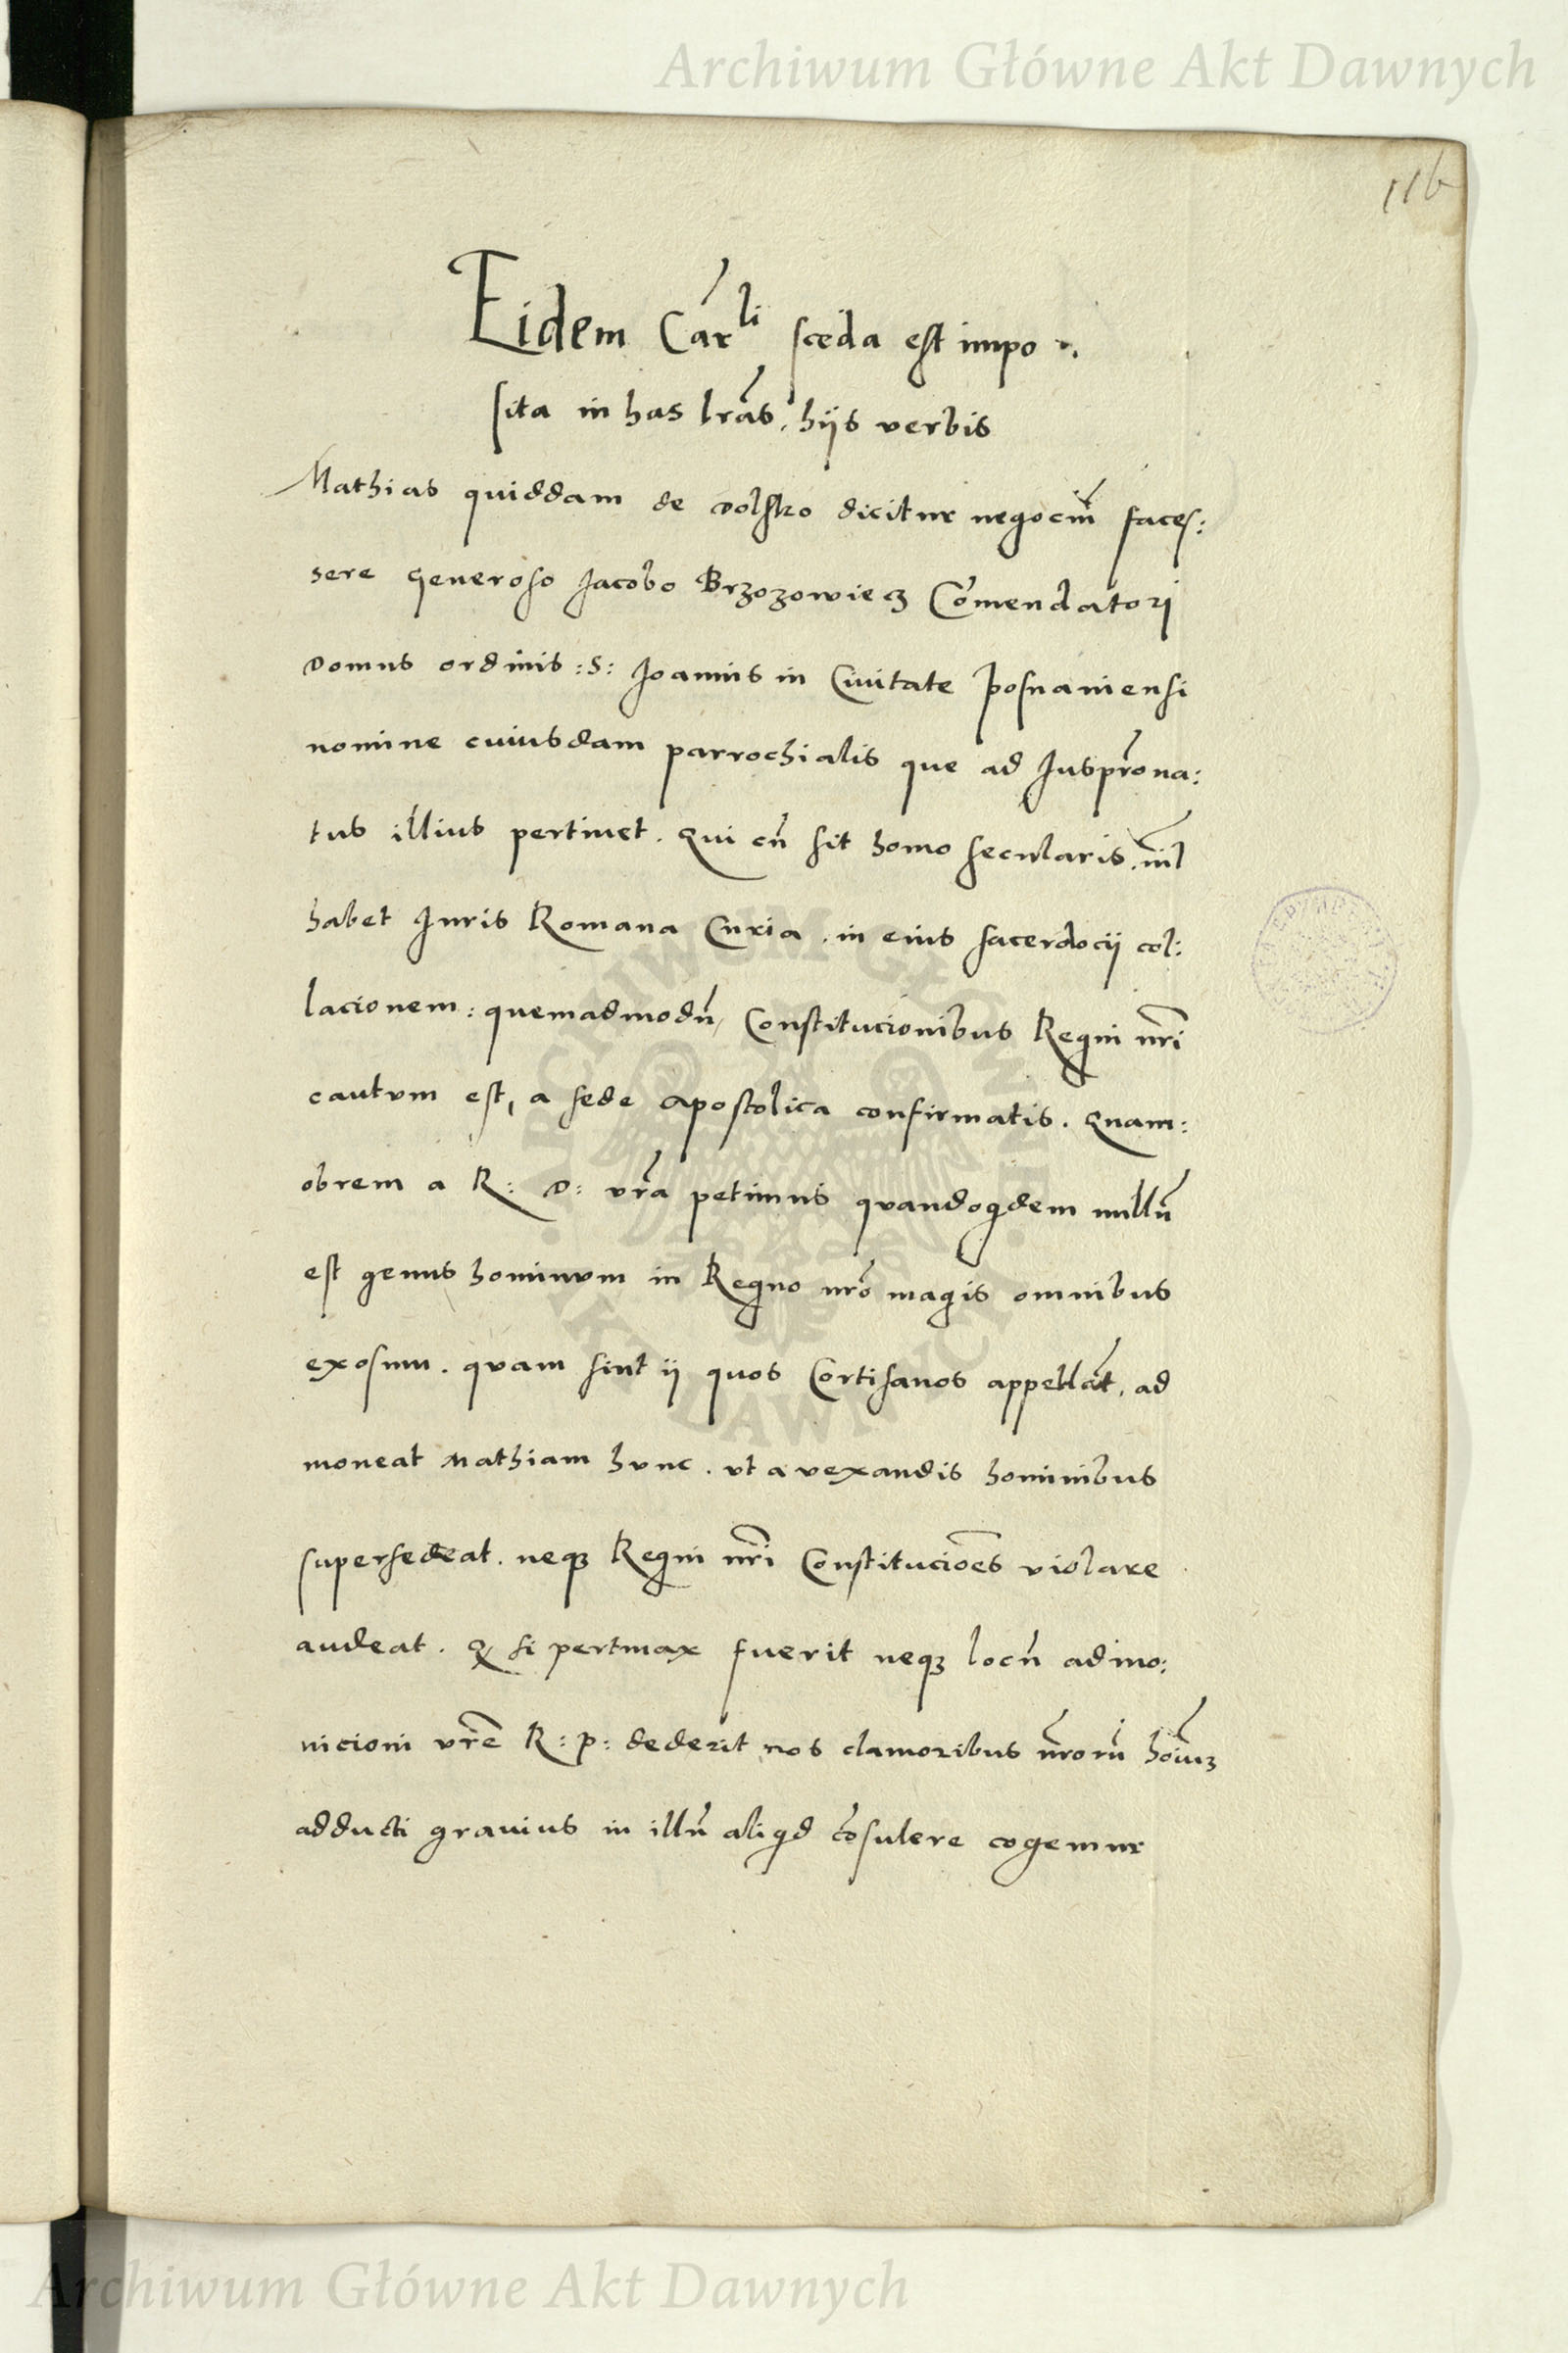 Archiwum Główne Akt Dawnych
116
Eidem Carli sceda est impo
sita in has lras, hijs verbis
Mathias quiddam de volsko dicitur negociũ faces:
sere generoso Jacobo Brzozowiecz Cõmendatori
domus ordinis :S: Joannis in Civitate Posnaniensi
nomine cuiusdam parrochialis que ad Juspr̃ona:
tus illius pertinet. Qui cũ sit homo secularis. nil
habet Juris Romana Curia. in eius sacerdocij col:
lacionem: quemadmodũ, Constitucionibus Regni nr̃i
cautum est, a sede apostolica confirmatis. Quam:
obrem a R: D: vr̃a petimus quandoqdem nullũ
est genus hominum in Regno nr̃o magis omnibus
exosum. quam sint ij quos Cortisanos appellãt, ad
moneat Mathiam hunc. ut a vexandis hominibus
supersedeat. neqz Regni nr̃i Constitucões violare
audeat. Q si pertinax fuerit neqz locũ admo:
nicioni vr̃e R: p: dederit nos clamoribus nr̃orũ hõiuz
adducti gravius in illũ aliqd cõsulere cogemur
ARCHIWUM GŁÓWNE
AKT DAWNYCH
Archiwum Główne Akt Dawnych